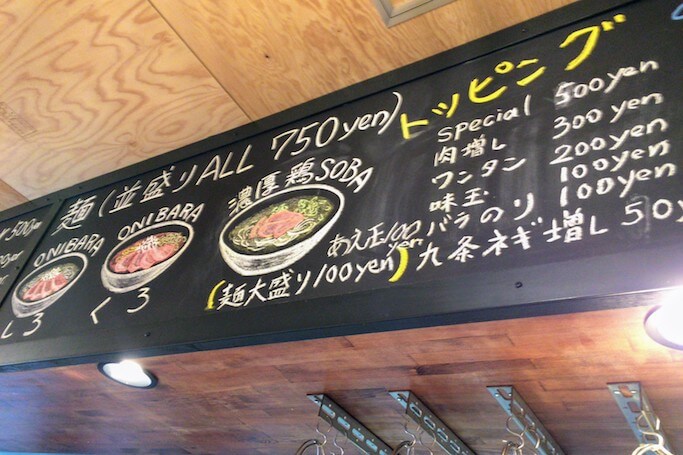 麺(並盛りALL 750yen)
ONIBARA
しろ
ONIBARA
くろ
濃厚鶏SOBA
あえ玉100yen
(麺大盛り100yen)
トッピング
Special 500yen
肉増し 300yen
ワンタン 200yen
味玉 100yen
バラのり 100yen
九条ネギ増し 50y
500yen